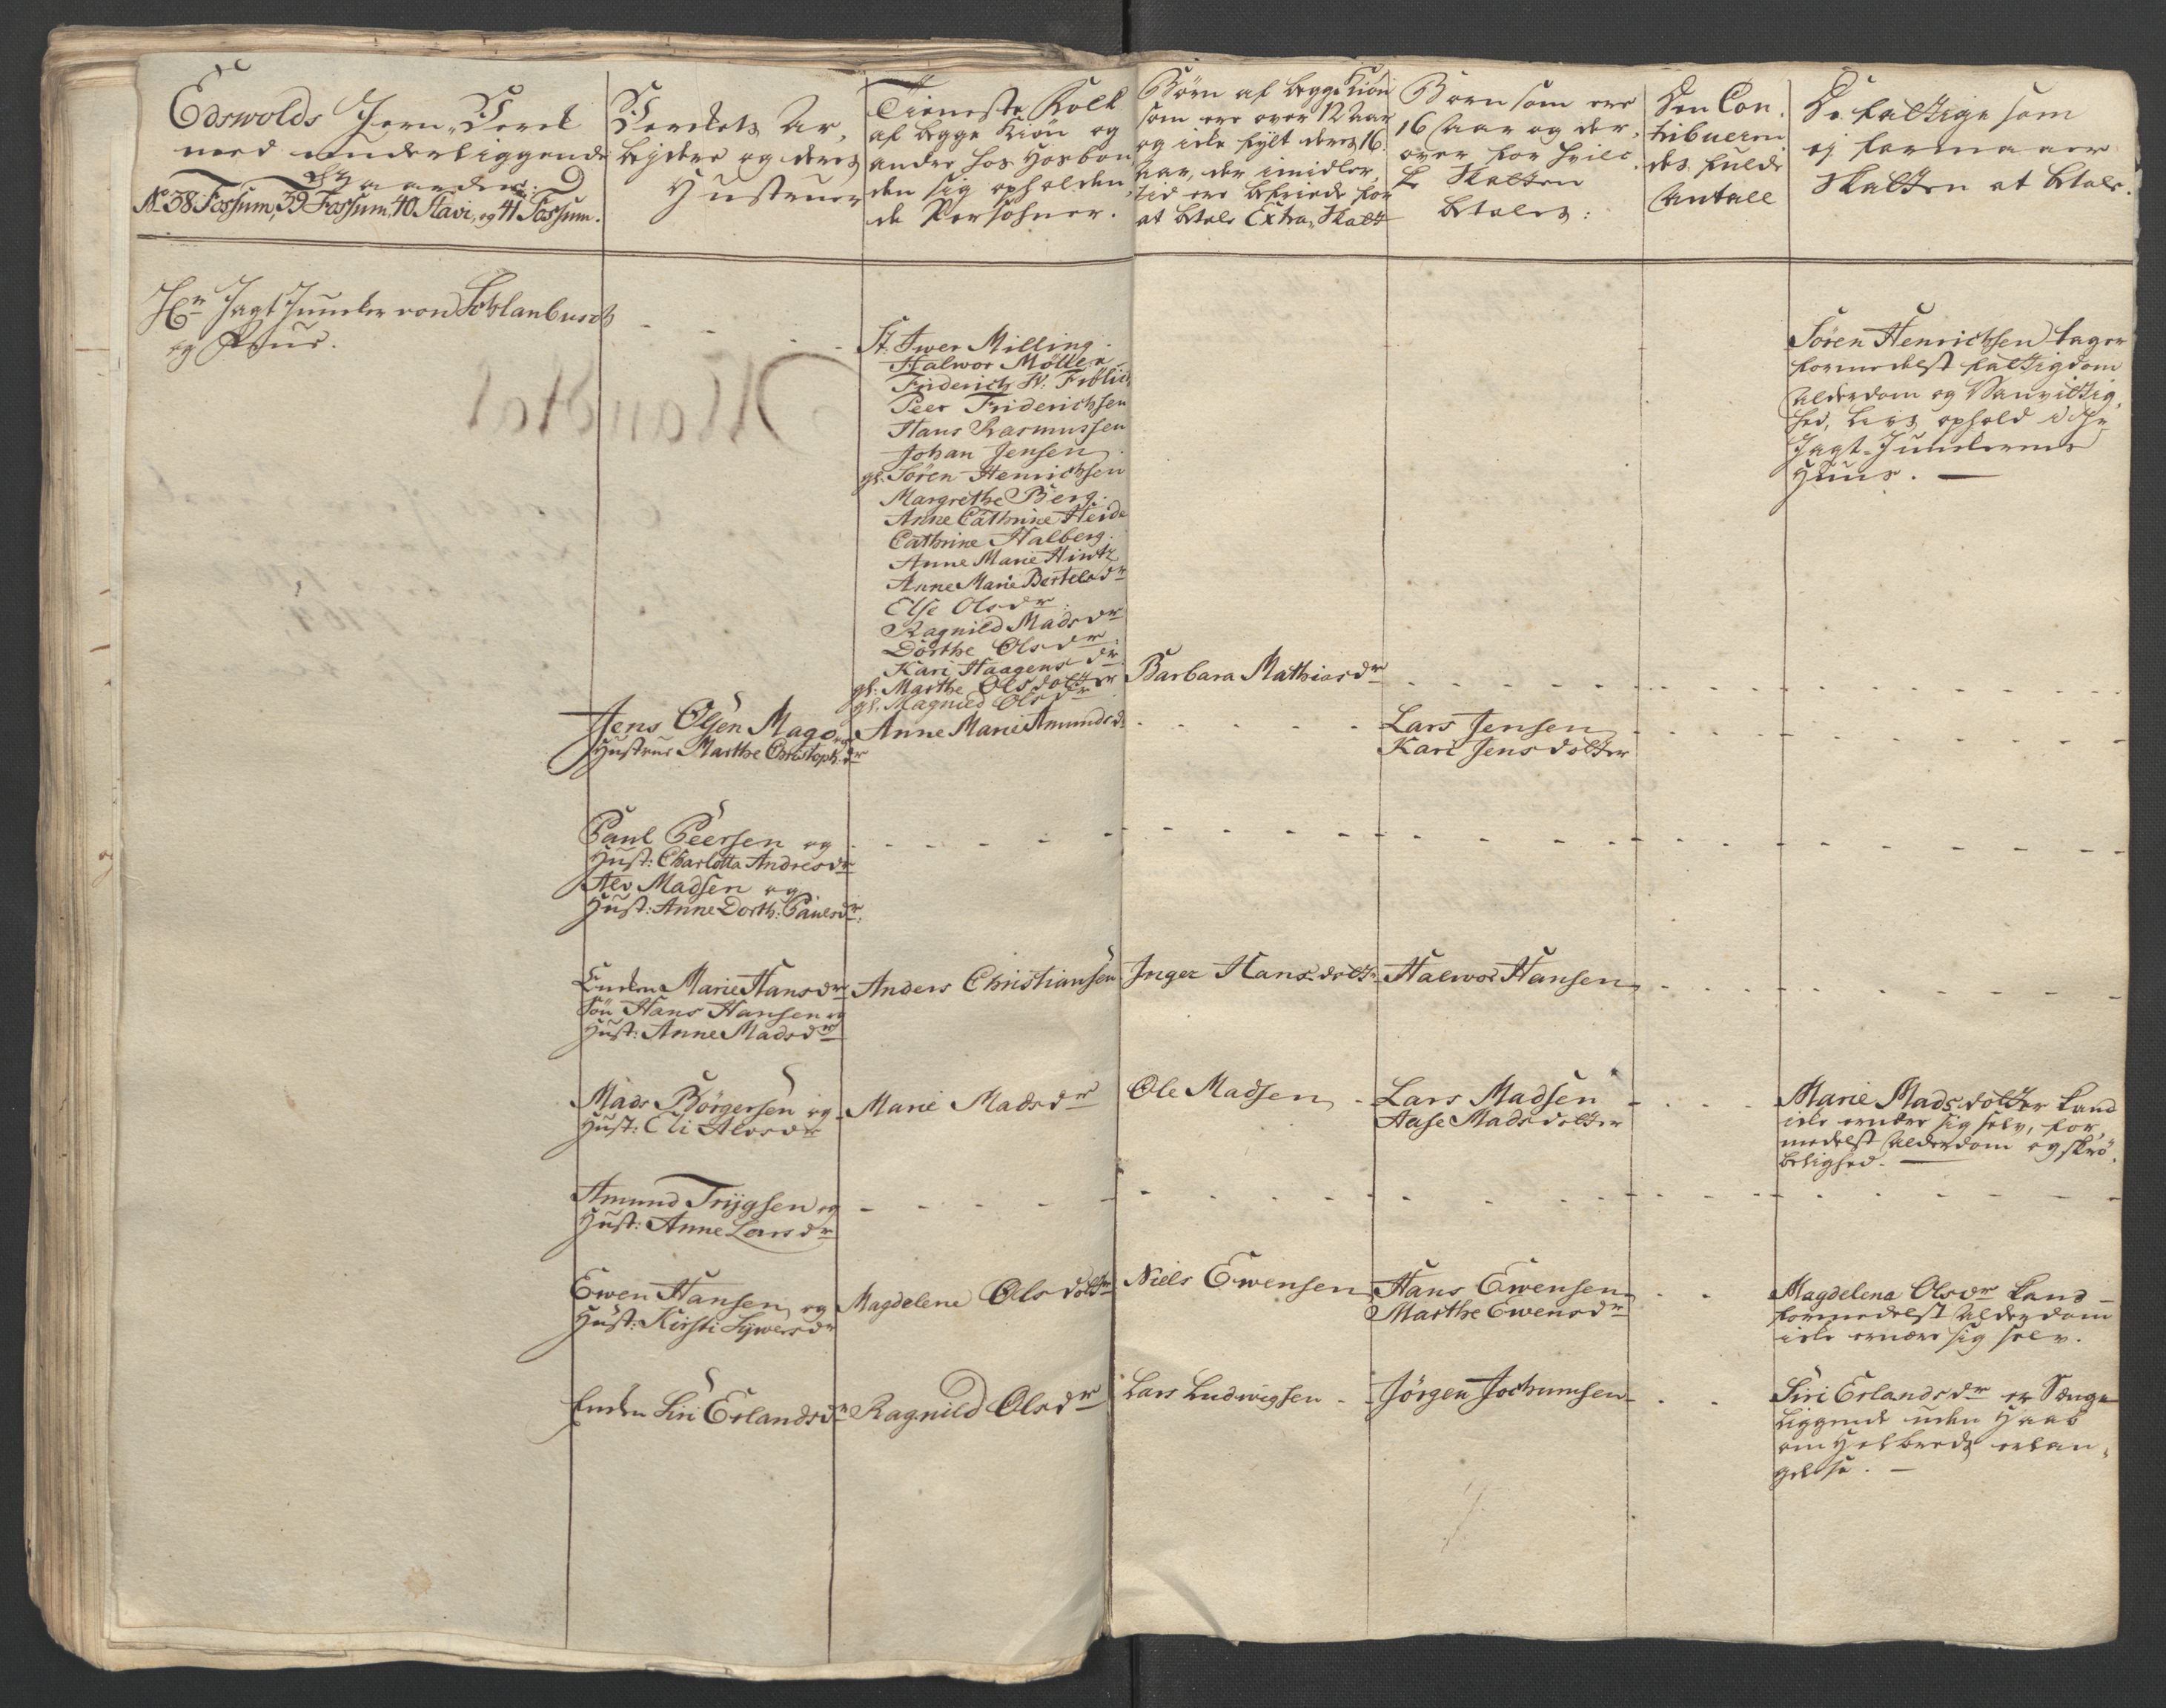 Edswolds Jern-Verck
med underliggende
Gaarder
No 38 Fossum, 39 Fossum, 40 Stavi, og 41 Fossum.
Verckets Ar-
bejdere og deres
Hustruer
Tieneste Folk
af begge Kiön og
andre hos Hosbon
den sig opholden-
de Persohner.
Börn af begge Kiön
som ere over 12 Aar
og icke fylt deres 16
Aar, der imidler-
tid ere befriede for
at betale Extra-Skatt
Börn som ere
16 Aar og der-
over for hvilc-
ke Skatten
betales:
Den Con-
tribueren
des fulde
Antall
De fattige som
ej formaaer
Skatten at betale.
Hr Jagt Juncker von Schlanbusch
og Frue.
St. Iwer Milling.
Halwor Möller
Friderich W: Frölich
Peer Friderichsen
Hans Rasmussen
Johan Jensen
gl. Sören Henrichsen
Margrethe Berg.
Anne Cathrine Heide
Cathrine Halberg.
Anne Marie Hintz
Anne Marie Bertelsdr
Else Olsdr.
Ragnild Madsdr
Dorthe Olsdr.
Kari Haagensdr
gl. Marthe Olsdotter
gl. Magnild Olsdr
Barbara Mathiasdr
Sören Henrichsen tager
formedelst fattigdom
Alderdom og Vanvittig-
hed, livs ophold i Hr
Jagt-Junckerens
Huus.
Jens Olsen Mago og
Hustrue Marthe Christophdr
Anne Marie Amundsdr
Lars Jensen
Kari Jensdotter
Paul Peersen og
Hust: Charlotta Andresdr
Alv Madsen og
Hust: Anne Dorth: Paulsdr.
Encken Marie Hansdr
Sön Hans Hansen og
Hust: Anne Madsdr
Anders Christiansen
Inger Hansdottr
Halwor Hansen
Mads Börgersen og
Hust: Eli Alvsdr
Marie Madsdr
Ole Madsen
Lars Madsen
Aase Madsdotter
Marie Madsdotter kand
icke ernære sig selv, for-
medelst Alderdom og skrö-
belighed.
Amund Trygsen og
Hust: Anne Larsdr
Ewen Hansen og
Hust: Kirsti Sywersdr
Magdelene Olsdottr
Niels Ewensen
Hans Ewensen
Marthe Ewensdr
Magdelena Olsdr kand
formedelst Alderdom
icke ernære sig selv.
Encken Siri Erlandsdr
Ragnild Olsdr
Lars Ludwigsen
Jörgen Jochumsen
Siri Erlandsdr er Senge
liggende uden Haab
om Helbreds erlan-
gelse.